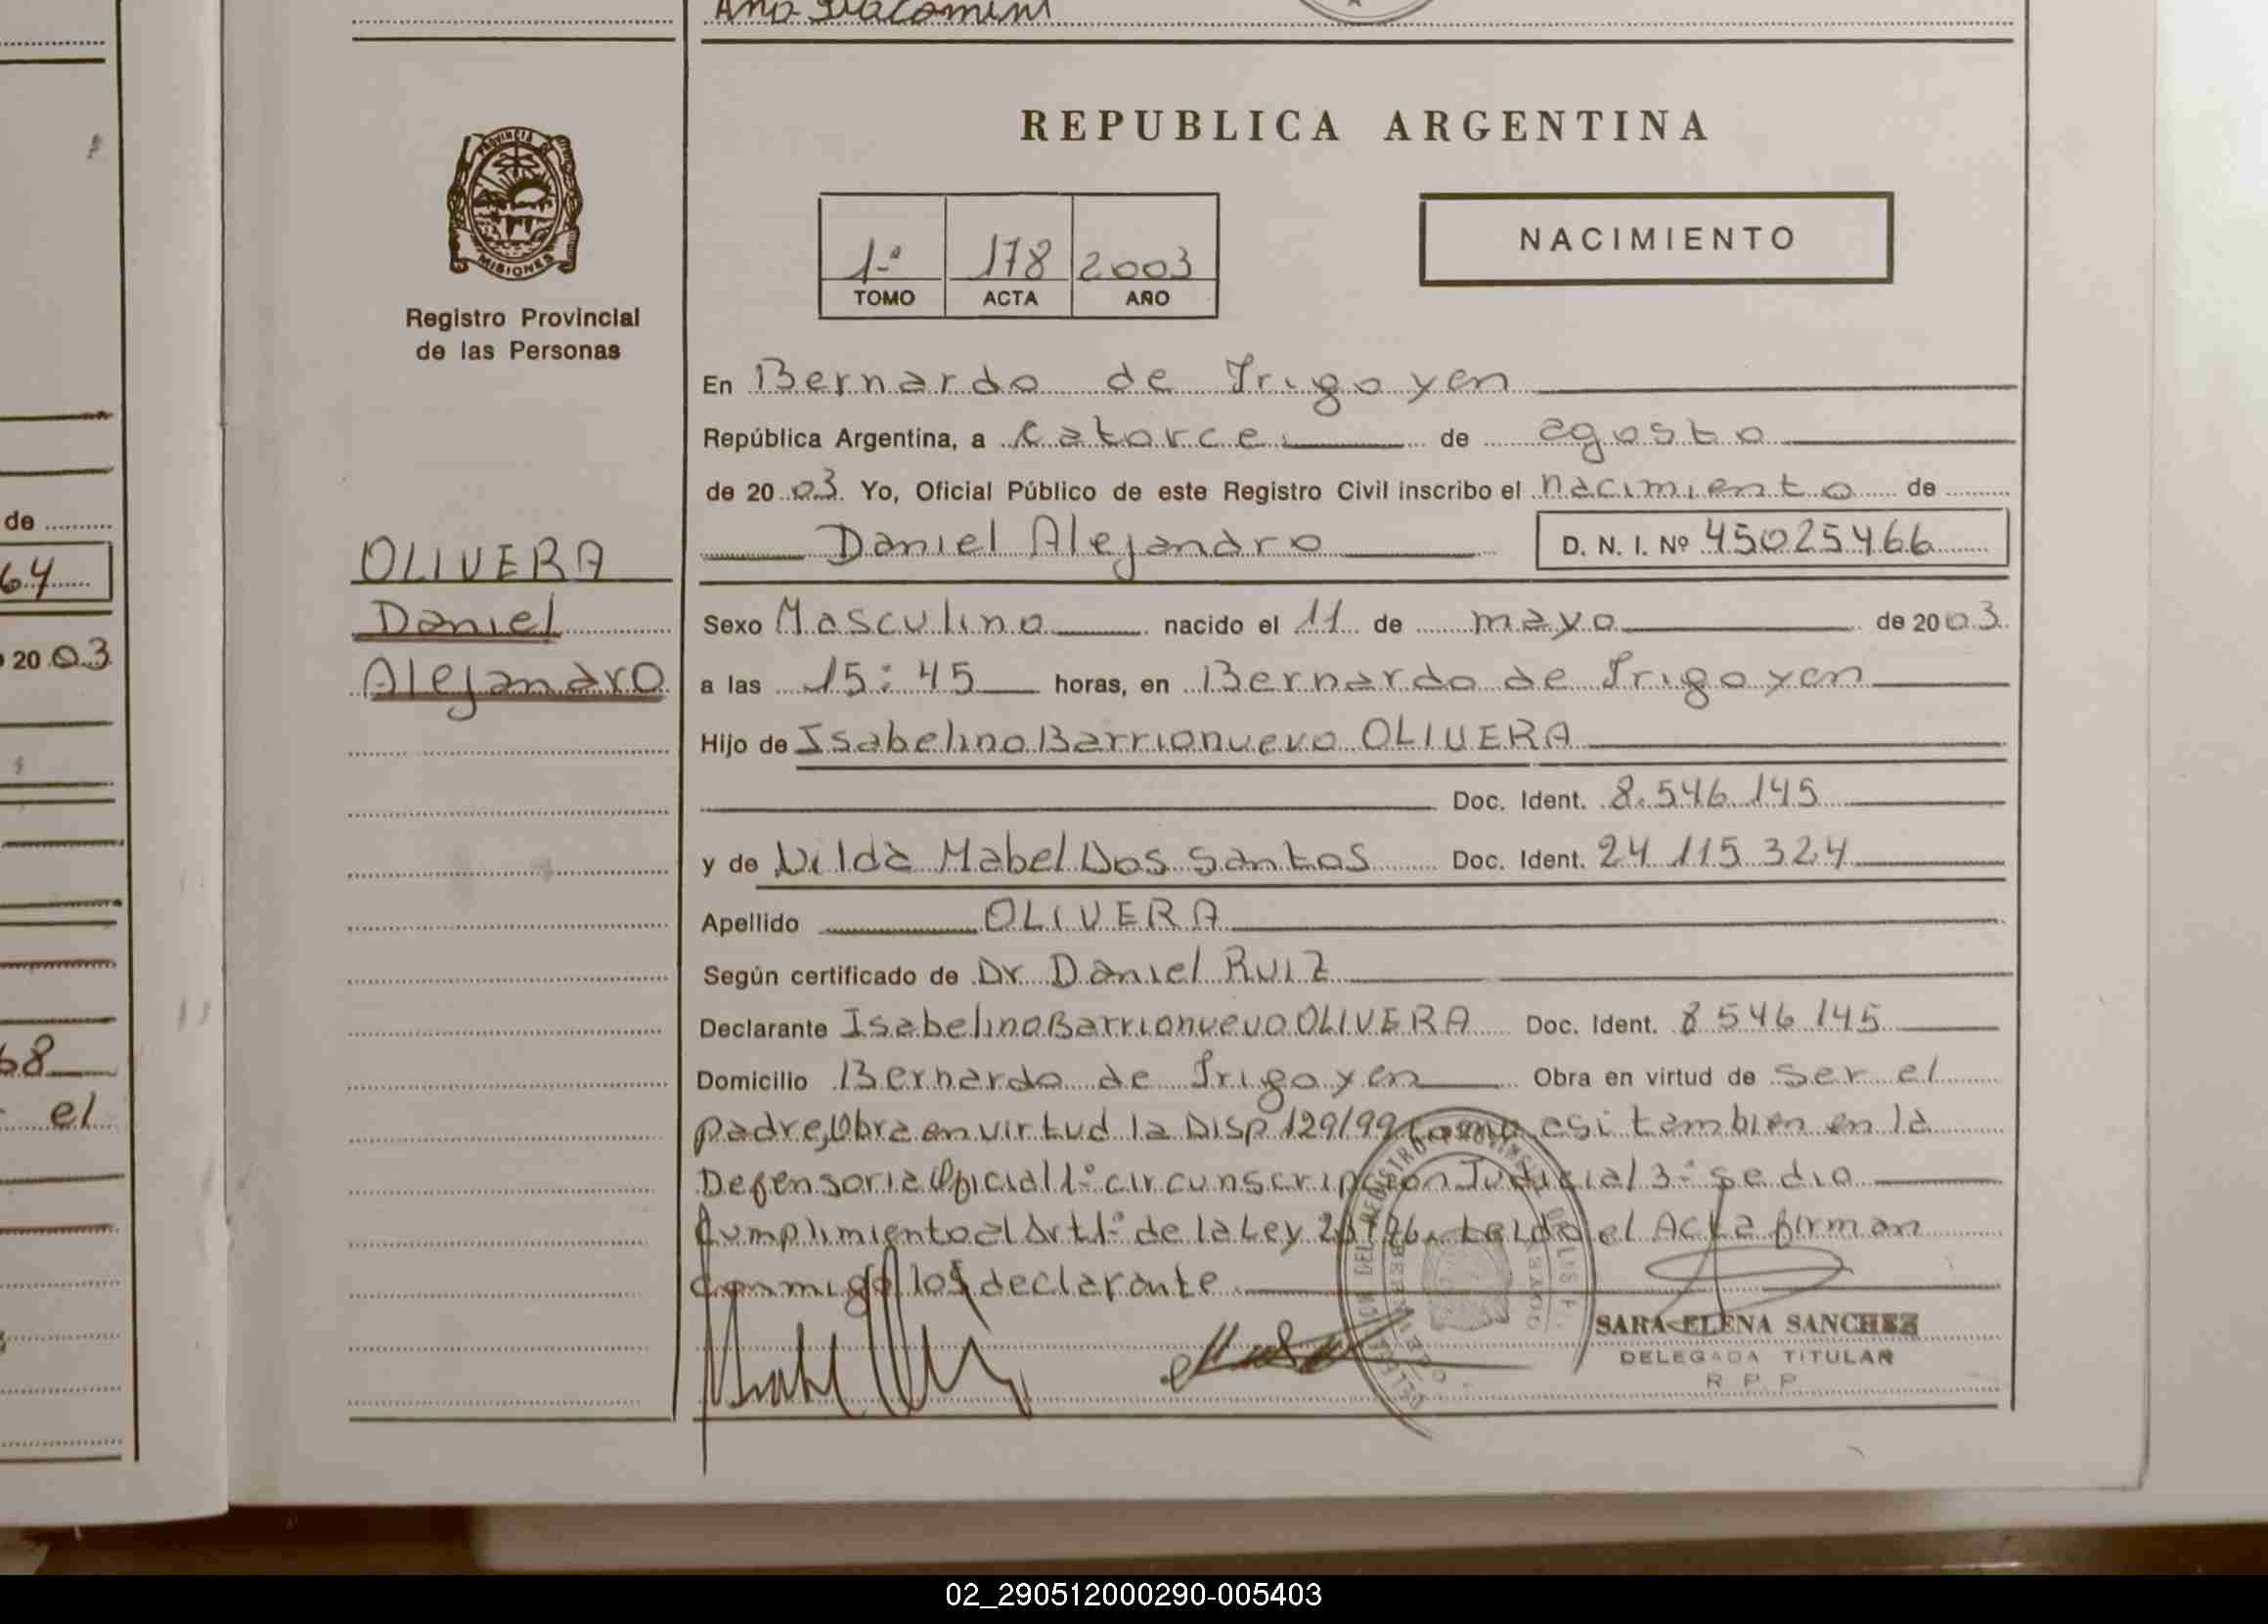 Ana Giacomini
REPUBLICA ARGENTINA
PROVINCIA DE
MISIONES
Registro Provincial
de las Personas
1-ª 178 2003
TOMO ACTA AÑO
NACIMIENTO
En Bernardo de Irigoyen
República Argentina, a Catorce de agosto
de 20 03. Yo, Oficial Público de este Registro Civil inscribo el nacimiento de
Daniel Alejandro D. N. I. Nº 45025466
OLIVERA
Daniel
Alejandro
Sexo Masculino nacido el 11 de mayo de 20 03.
a las 15:45 horas, en Bernardo de Irigoyen
Hijo de Isabelino Barrionuevo OLIVERA
Doc. Ident. 8.546.145
y de Nilda Mabel Dos Santos Doc. Ident. 24 115 324
Apellido OLIVERA
Según certificado de Dr Daniel Ruiz
Declarante Isabelino Barrionuevo OLIVERA Doc. Ident. 8 546 145
Domicilio Bernardo de Irigoyen Obra en virtud de ser el
padre, Obra en virtud la Disp 129/99 Como asi tambien en la
Defensoria Oficial 1º circunscripcion Judicial 3º se dio
Cumplimiento al Art 1º de la Ley Leido el Acta firman
conmigo los declarante
SARA ELENA SANCHEZ
DELEGADA TITULAR
R P P
de
64
20 03
68
el
02_290512000290-005403